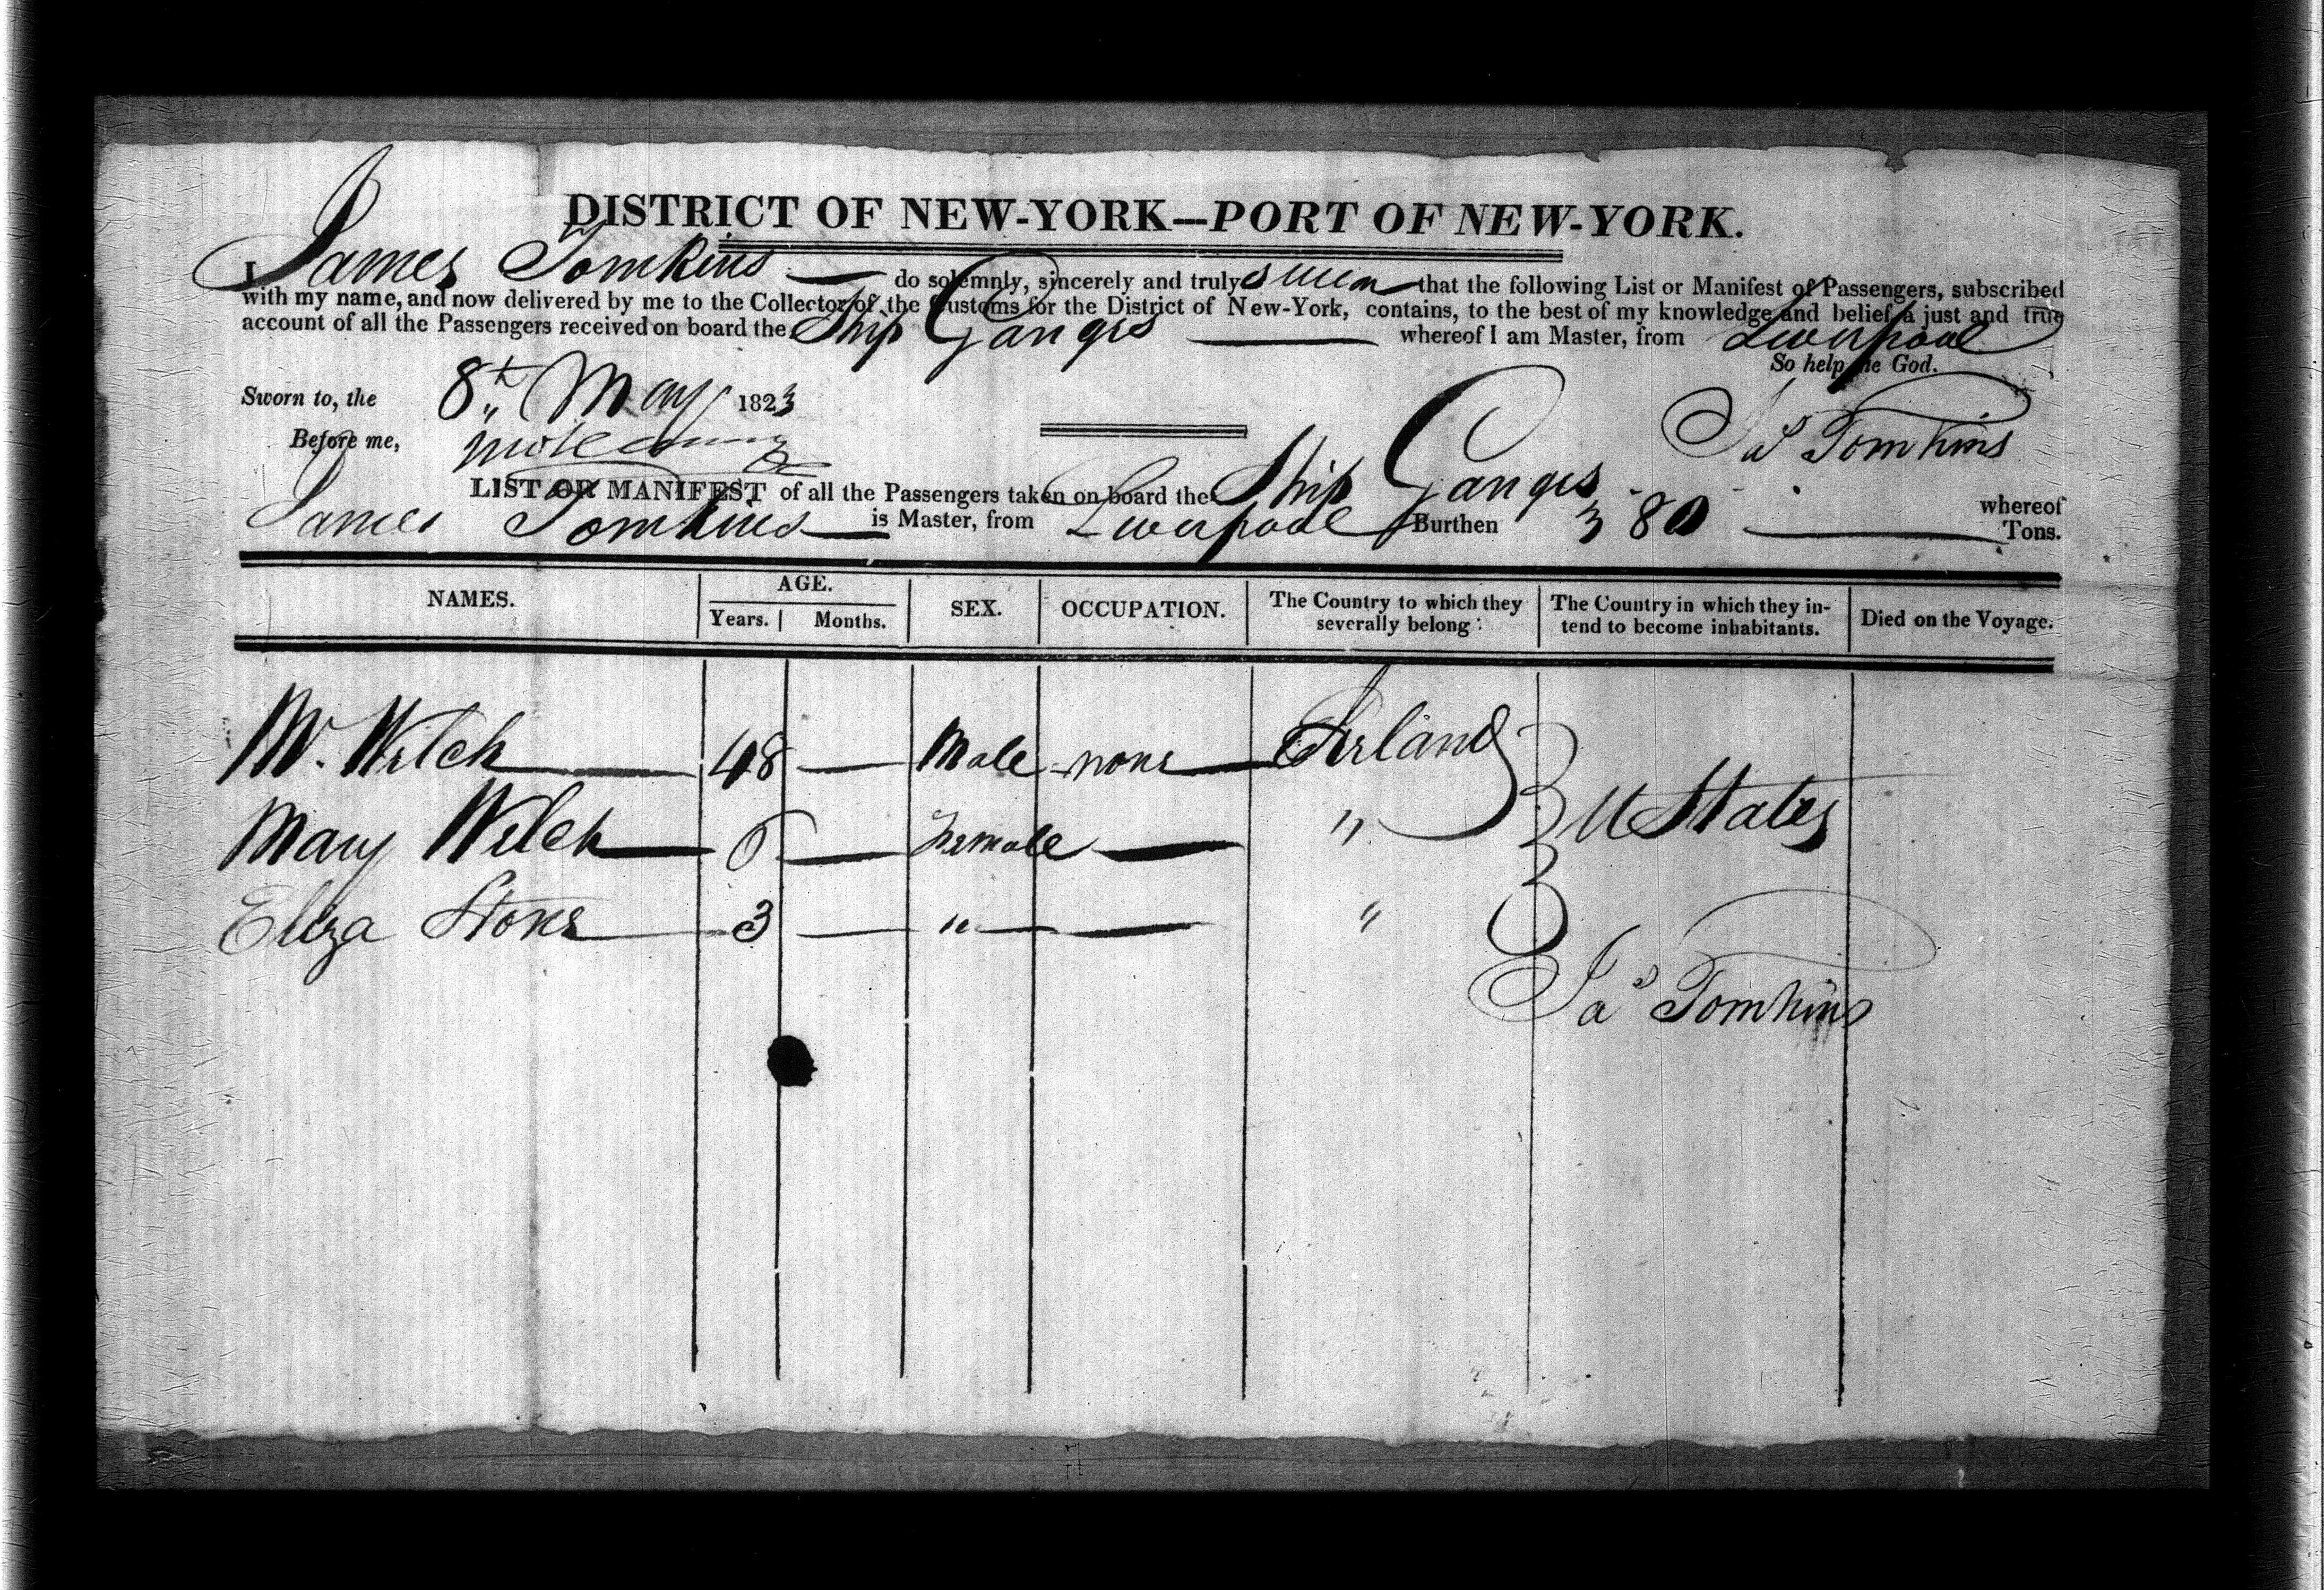 DISTRICT OF NEW-YORK—PORT OF NEW-YORK.
I James Tomkins do solemnly, sincerely and truly swear that the following List or Manifest of Passengers, subscribed
with my name, and now delivered by me to the Collector of the Customs for the District of New-York, contains, to the best of my knowledge and belief, a just and true
account of all the Passengers received on board the Ship Ganges whereof I am Master, from Liverpool
So help me God.
Sworn to, the 8th May 1823
Jas Tomkins
Before me,
LIST OR MANIFEST of all the Passengers taken on board the Ship Ganges whereof
James Tomkins is Master, from Liverpool Burthen 380 Tons.
NAMES. AGE. Years. Months. SEX. OCCUPATION. The Country to which they severally belong: The Country in which they intend to become inhabitants. Died on the Voyage.
M. Welch 48 — Male none Irland
Mary Welch 6 — Female — " U States
Eliza Stoks 3 — " — "
Jas Tomkins